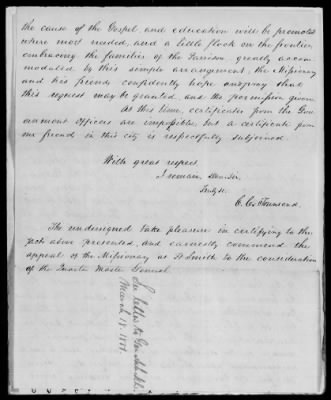 the cause of the Gospel and education will be promoted
where most needed, and a little flock on the frontier
embracing the families of the Garrison greatly accom
modated by this simple arrangement, the Missionary
and his friends confidently hope and pray that
this request may be granted and the permission given
At this time, certificates from the Gov
ernment officers are impossible, but a certificate from
one friend in this city is respectfully subjoined.
With great respect
I remain, dear Sir,
Truly &c.
C. C. Townsend.
The undersigned take pleasure in certifying to the
facts above presented, and earnestly commend the
appeal of the Missionary at Ft Smith to the consideration
of the Quarter Master General.
See letter to Gen
March 18.